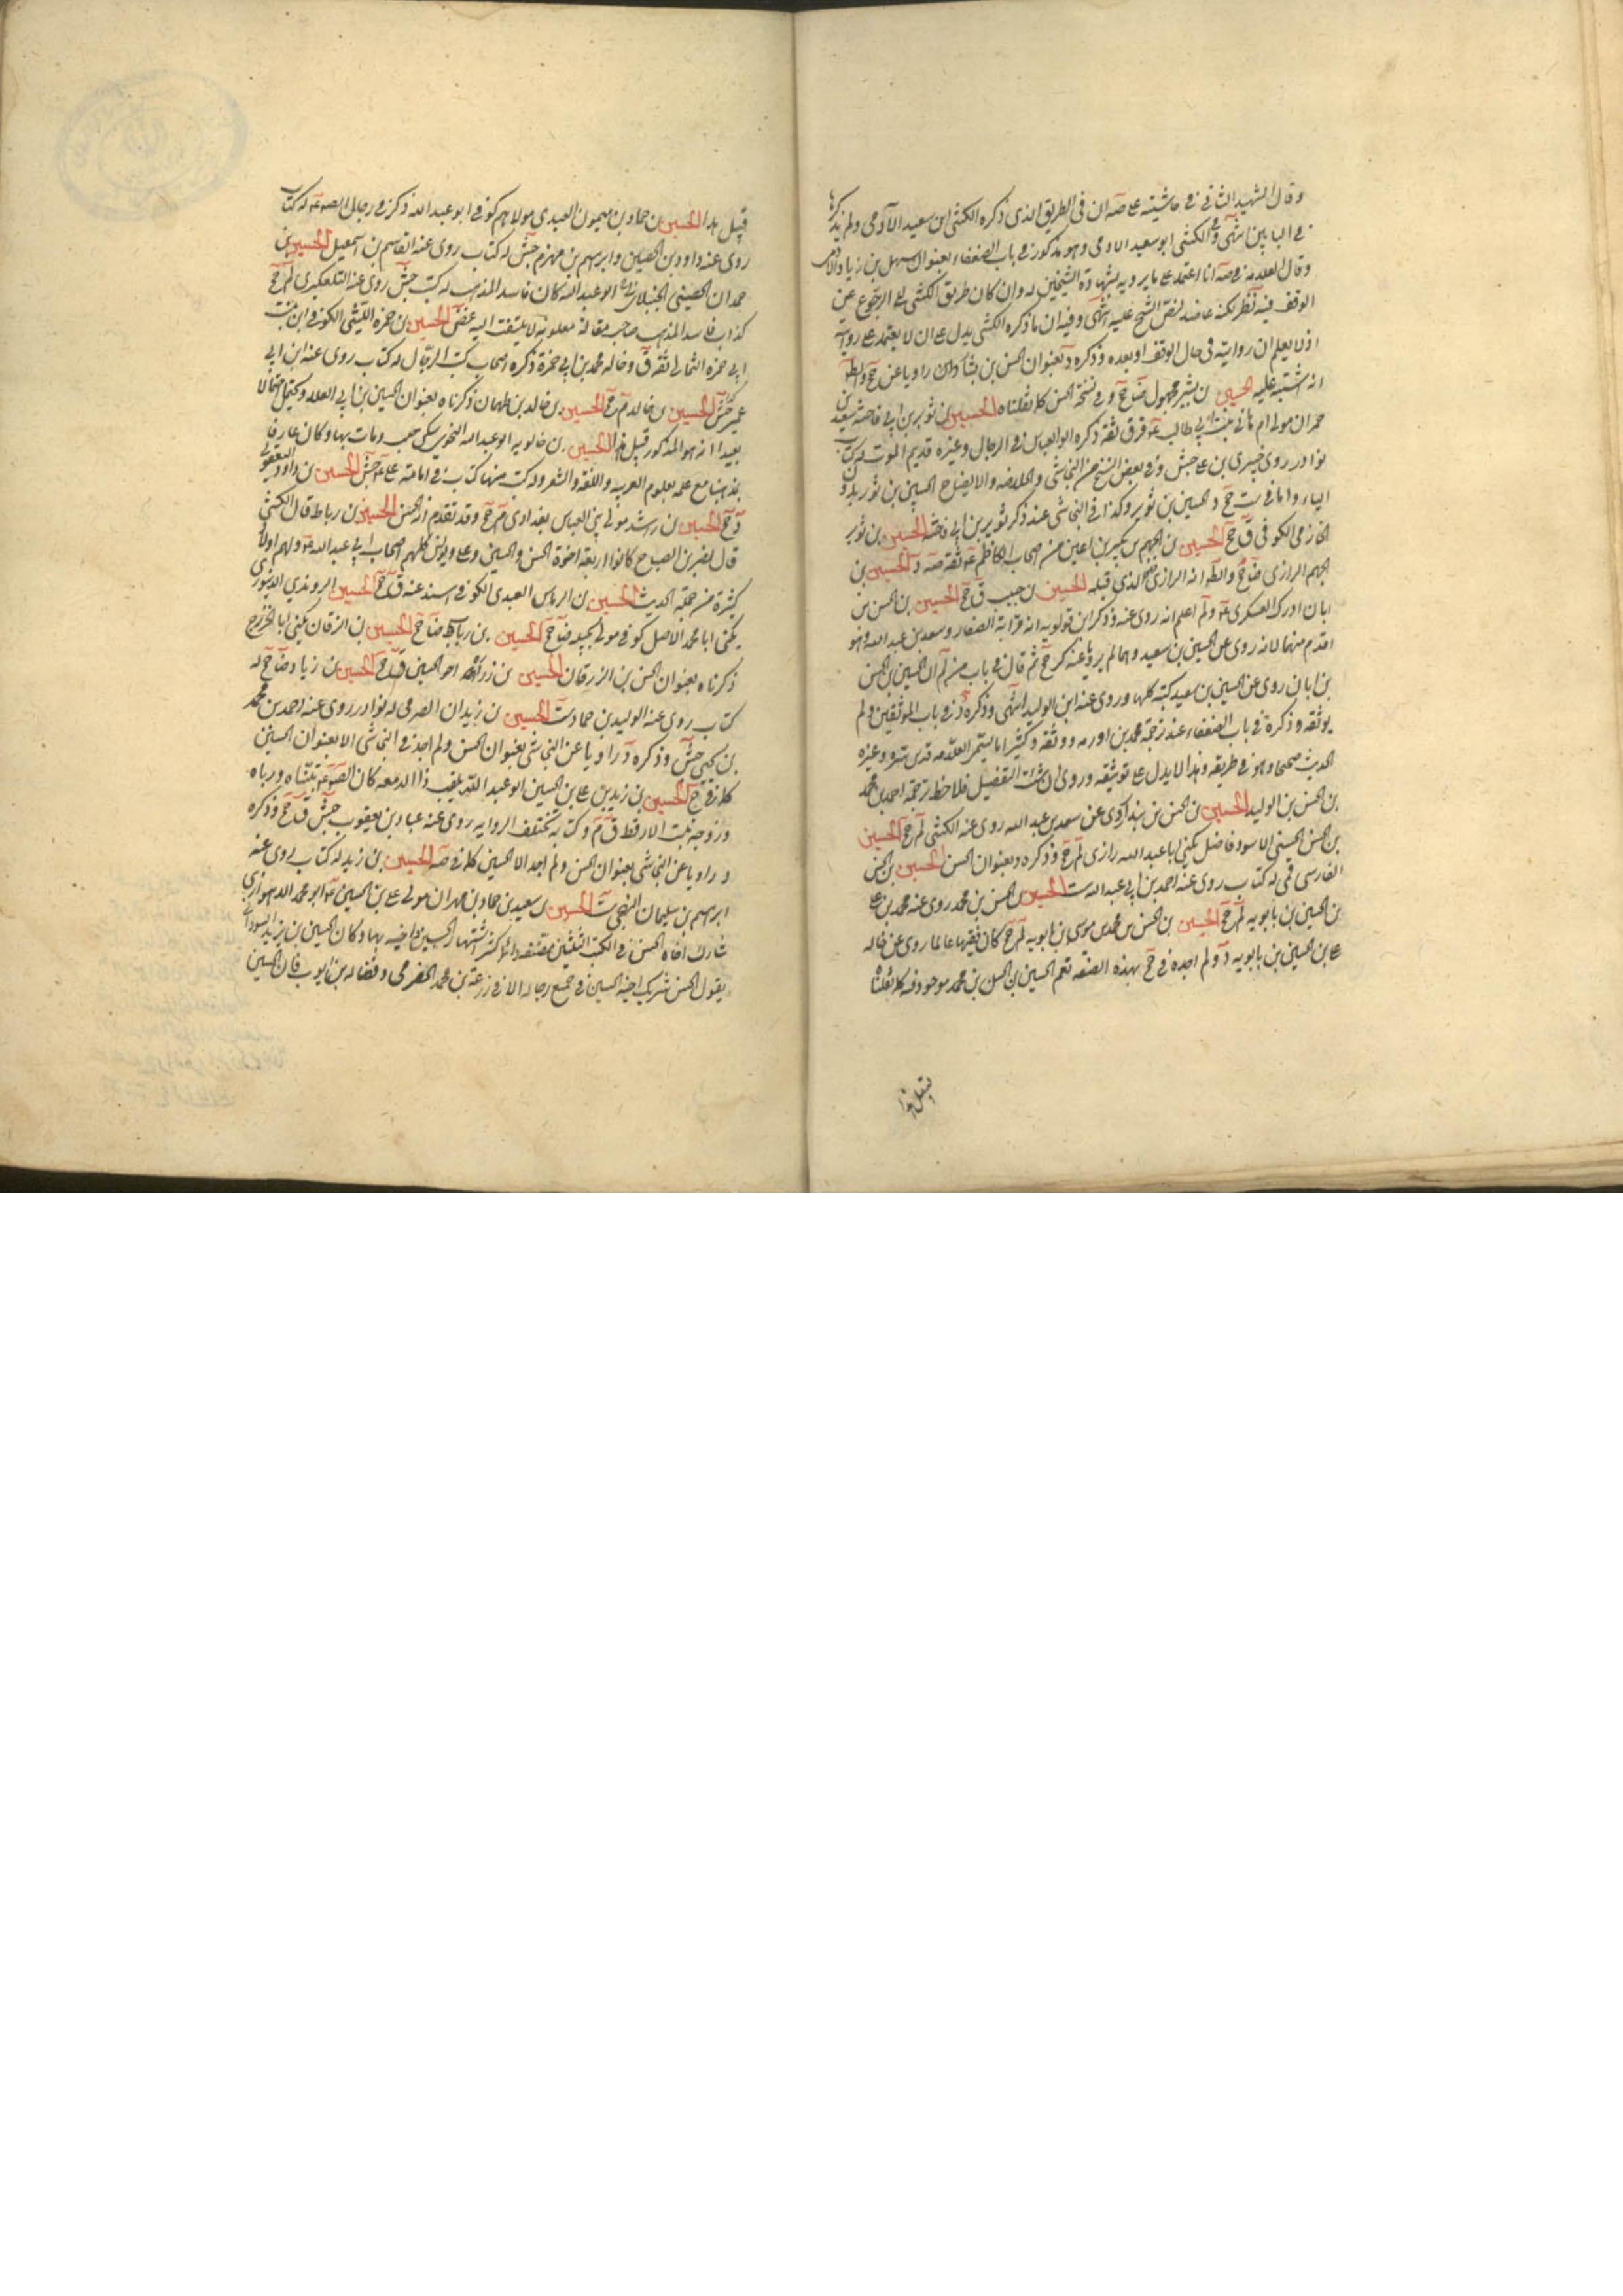 وقال الشهيد الثاني في حاشيته على صه ان في الطريق الذي ذكره الكشي ابن سعيد الآدمي ولم يذكرها
في البابين انتهى وفي الكشي ابو سعيد الادمي وهو مذكور في باب الضعفاء بعنوان سهل بن زياد
وقال العلامة في صه انا اعتمد على ما يرويه بشهادة الشيخين له وان كان طريق الكشي الى الرجوع عن
الوقف فيه نظر لكنه عاضد لنص الشيخ عليه انتهى وفيه ان ما ذكره الكشي يدل على ان لا يعتمد على روايته
اذ لا يعلم ان روايته في حال الوقف او بعده وذكره د بعنوان الحسن بن بشار وان راويا عن جخ
انه اشتبه عليه الحسين بن بشير مجهول ضا جخ وفي نسخة الحسن كما نقلناه الحسين بن ثوير بن ابي فاخته سعيد بن
حمران مولى ام هاني بنت ابي طالب ق قر ثقة ذكره ابو العباس في الرجال وغيره قديم الموت له كتاب
نوادر روى خيبري بن علي جش وفي بعض النسخ من النجاشي والخلاصه والايضاح الحسين بن ثور بدون
الياء واما في ست جخ د الحسين بن ثوير وكذا في النجاشي عند ذكر ثوير بن ابي فاخته الحسين بن ثوير
الخازمي الكوفي ق جخ الحسين بن الجهم بن بكير بن اعين من اصحاب الكاظم ع ثقة صه د الحسين بن
الجهم الرازي ضا جخ والظ انه الرازي الذي قبله الحسين بن حبيب ق جخ الحسين بن الحسن بن
ابان ادرك العسكري ع ولم اعلم انه روى عنه وذكر ابن قولويه انه قرابة الصفار وسعد بن عبد الله وهو
اقدم منهما لانه روى عن الحسين بن سعيد وهما لم يرويا عنه كر جخ ثم قال في باب من لم ان الحسين بن الحسن
بن ابان روى عن الحسين بن سعيد كتبه كلها وروى عنه ابن الوليد انتهى وذكره د في باب الموثقين ولم
يوثقه وذكره في باب الضعفاء عند ترجمة محمد بن اورمه ووثقه وكثيرا ما يسمى العلامة قدس سره وغيره
الحديث صحيحا وهو في طريقه وهذا لا يدل على توثيقه وروى ان شئت التفصيل فلاحظ ترجمة احمد بن محمد
بن الحسن بن الوليد الحسين بن الحسن بن بندار روى عن سعد بن عبد الله روى عنه الكشي لم جخ الحسين
بن الحسن الحسني الاسود فاضل يكنى ابا عبد الله رازي لم جخ وذكره د بعنوان الحسن الحسين بن الحسن
الفارسي قمي له كتاب روى عنه احمد بن ابي عبد الله ست الحسين بن الحسن بن محمد روى عنه محمد بن علي
بن الحسين بن بابويه لم جخ الحسين بن الحسن بن محمد بن موسى بن بابويه لم جخ كان فقيها عالما روى عن خاله
علي بن الحسين بن بابويه د ولم اجده في جخ بهذه الصفه نعم الحسين بن الحسن بن محمد موجود فيه كما نقلناه
قبيل هذا
قبيل هذا الحسين بن حماد بن ميمون العبدي مولاهم كوفي ابو عبد الله ذكر في رجال الصه ع له كتاب
روى عنه داود بن الحصين وابراهيم بن مهزم جش له كتاب روى عنه القاسم بن اسمعيل الحسين بن
حمدان الحضيني الجنبلاني ابو عبد الله كان فاسد المذهب له كتب جش روى عنه التلعكبري لم جخ
كذاب فاسد المذهب صاحب مقالة ملعونة لا يلتفت اليه غض الحسين بن حمزه الليثي الكوفي ابن بنت
ابي حمزه الثمالي ثقة ق وخاله محمد بن ابي حمزة ذكره اصحاب كتب الرجال له كتاب روى عنه ابن ابي
عمير جش الحسين بن خالد م جخ الحسين بن خالد بن طهمان ذكرناه بعنوان الحسين بن ابي العلاء ويحتمل احتمالا
بعيدا انه هو المذكور قبيل هذا الحسين بن خالويه ابو عبد الله النحوي سكن حلب ومات بها وكان عارفا
بمذهبنا مع علمه بعلوم العربيه واللغه والشعر وله كتب منها كتاب في امامة علي ع جش الحسين بن داود اليعقوبي
د جخ الحسين بن راشد مولى بني العباس بغدادي م جخ وقد تقدم في الحسن الحسين بن رباط قال الكشي
قال نصر بن الصباح كانوا اربعة اخوة الحسن والحسين وعلي ويونس كلهم اصحاب ابي عبد الله ع ولهم اولاد
كثيرة من حملة الحديث الحسين بن الرماس العبدي الكوفي اسند عنه ق جخ الحسين الروندي الدينوري
يكنى ابا محمد الاصل كوفي مولى بجيله ضا جخ الحسين بن رباب ضا جخ الحسين بن الزرقان يكنى ابا الخزرج
ذكرناه بعنوان الحسن بن الزرقان الحسين بن زراره اخو الحسن ق جخ الحسين بن زياد ضا جخ له
كتاب روى عنه الوليد بن حماد ست الحسين بن زيدان الصرمي له نوادر روى عنه احمد بن محمد
بن يحيى جش وذكره د راويا عن النجاشي بعنوان الحسن ولم اجد في النجاشي الا بعنوان الحسين
كما في ق جخ الحسين بن زيد بن علي بن الحسين ابو عبد الله يلقب ذا الدمعه كان الصه ع تبناه ورباه
وزوجه بنت الارقط ق م وكتابه مختلف الروايه روى عنه عباد بن يعقوب جش ق جخ وذكره
د راويا عن النجاشي بعنوان الحسن ولم اجد الا الحسين كما في صه الحسين بن زيد له كتاب روى عنه
ابراهيم بن سليمان النهمي ست الحسين بن سعيد بن حماد بن مهران مولى علي بن الحسين ع ابو محمد الاهوازي
شارك اخاه الحسن في الكتب الثلثين المصنفه وانما كثر اشتهار الحسين اخيه بها وكان الحسين بن يزيد السوراني
يقول الحسن شريك اخيه الحسين في جميع رجاله الا في زرعة بن محمد الحضرمي وفضاله بن ايوب فان الحسين